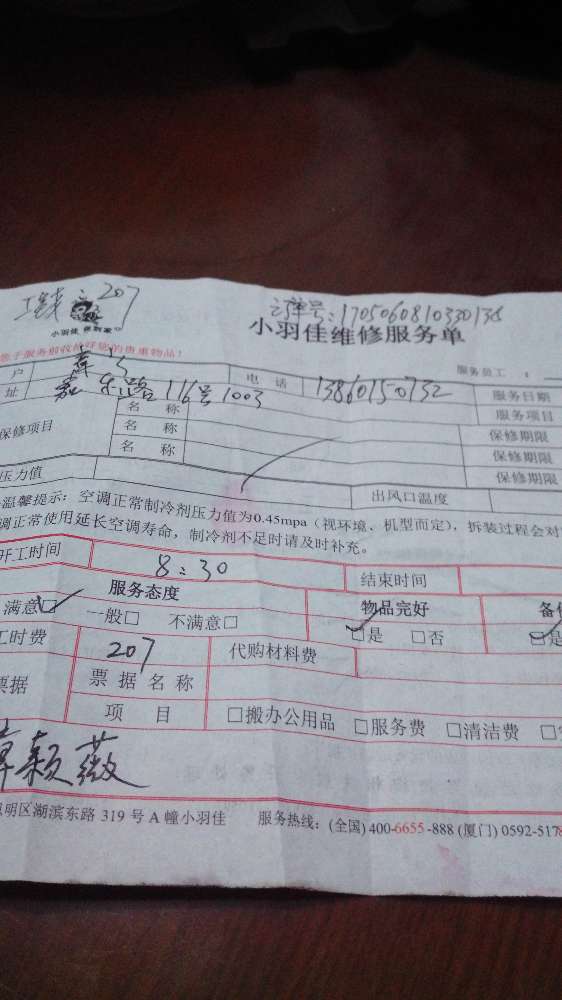 207 订单号:170506081033013
小羽佳
小羽佳维修服务单
服务前收好您的贵重物品!
服务员工:
户 电话 13860150732 服务日期
址 嘉禾路116号1003 服务项目
保修项目 名称 保修期限
名称 保修期限
名称 保修期限
压力值 出风口温度
温馨提示:空调正常制冷剂压力值为0.45mpa(视环境、机型而定),拆装过程会对
调正常使用延长空调寿命,制冷剂不足时请及时补充。
开工时间 8:30 结束时间
服务态度 物品完好
满意☑ 一般□ 不满意□ ☑是 □否 ☑是
工时费 207 代购材料费
票据 票据名称
项目 □搬办公用品 □服务费 □清洁费
颖薇
思明区湖滨东路 319 号 A 幢小羽佳 服务热线:(全国) 400-6655-888 (厦门) 0592-5178